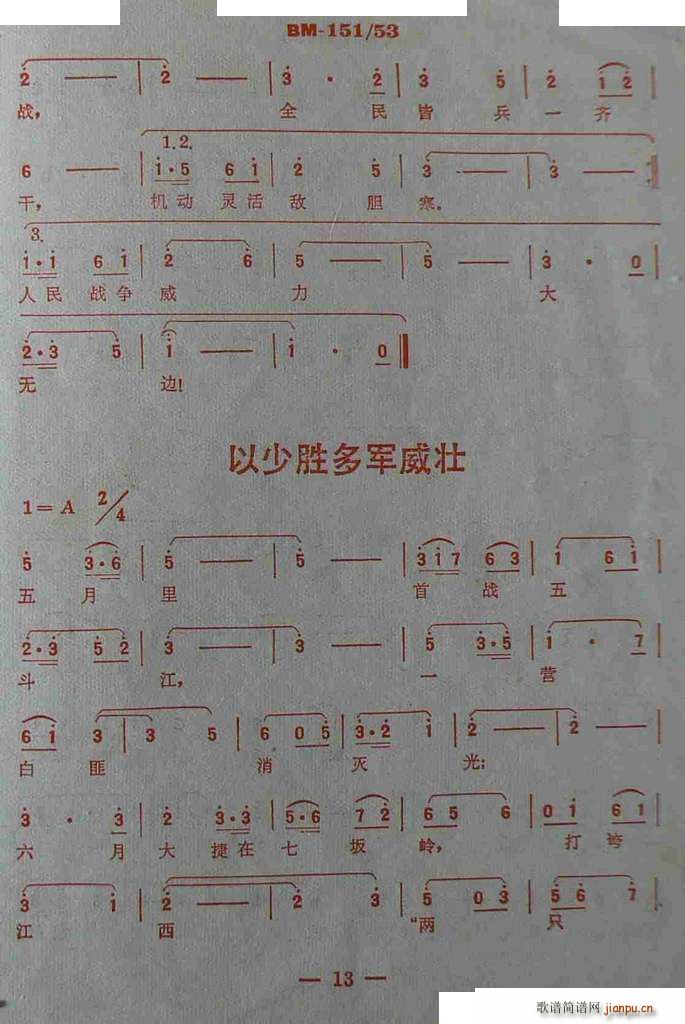 BM-151/53
2 — 2 — 3 · 2 3 5 2 1 2
战， 全 民 皆 兵 一 齐
1.2.
6 — 1·5 6 1 2 5 3 — 3 —
干， 机动 灵活 敌 胆 寒。
3.
1·1 6 1 2 6 5 — 5 — 3 · 0
人民 战争 威 力 大
2·3 5 1 — 1 · 0
无 边！
以少胜多军威壮
1=A 2/4
5 3·6 5 — 5 — 3 1 7 6 3 1 6 1
五 月 里 首 战 五
2·3 5 2 3 — 3 — 5 3·5 1 · 7
斗 江， 一 营
6 1 3 3 5 6 0 5 3·2 1 2 — 2 —
白 匪 消 灭 光；
3 · 3 2 3·3 5·6 7 2 6 5 6 5 0 1 6 1
六 月 大 捷在 七 坂 岭， 打 垮
3 1 2 — 2 3 5 0 3 5 6 7
江 西 “两 只
— 13 —
歌谱简谱网 jianpu.cn